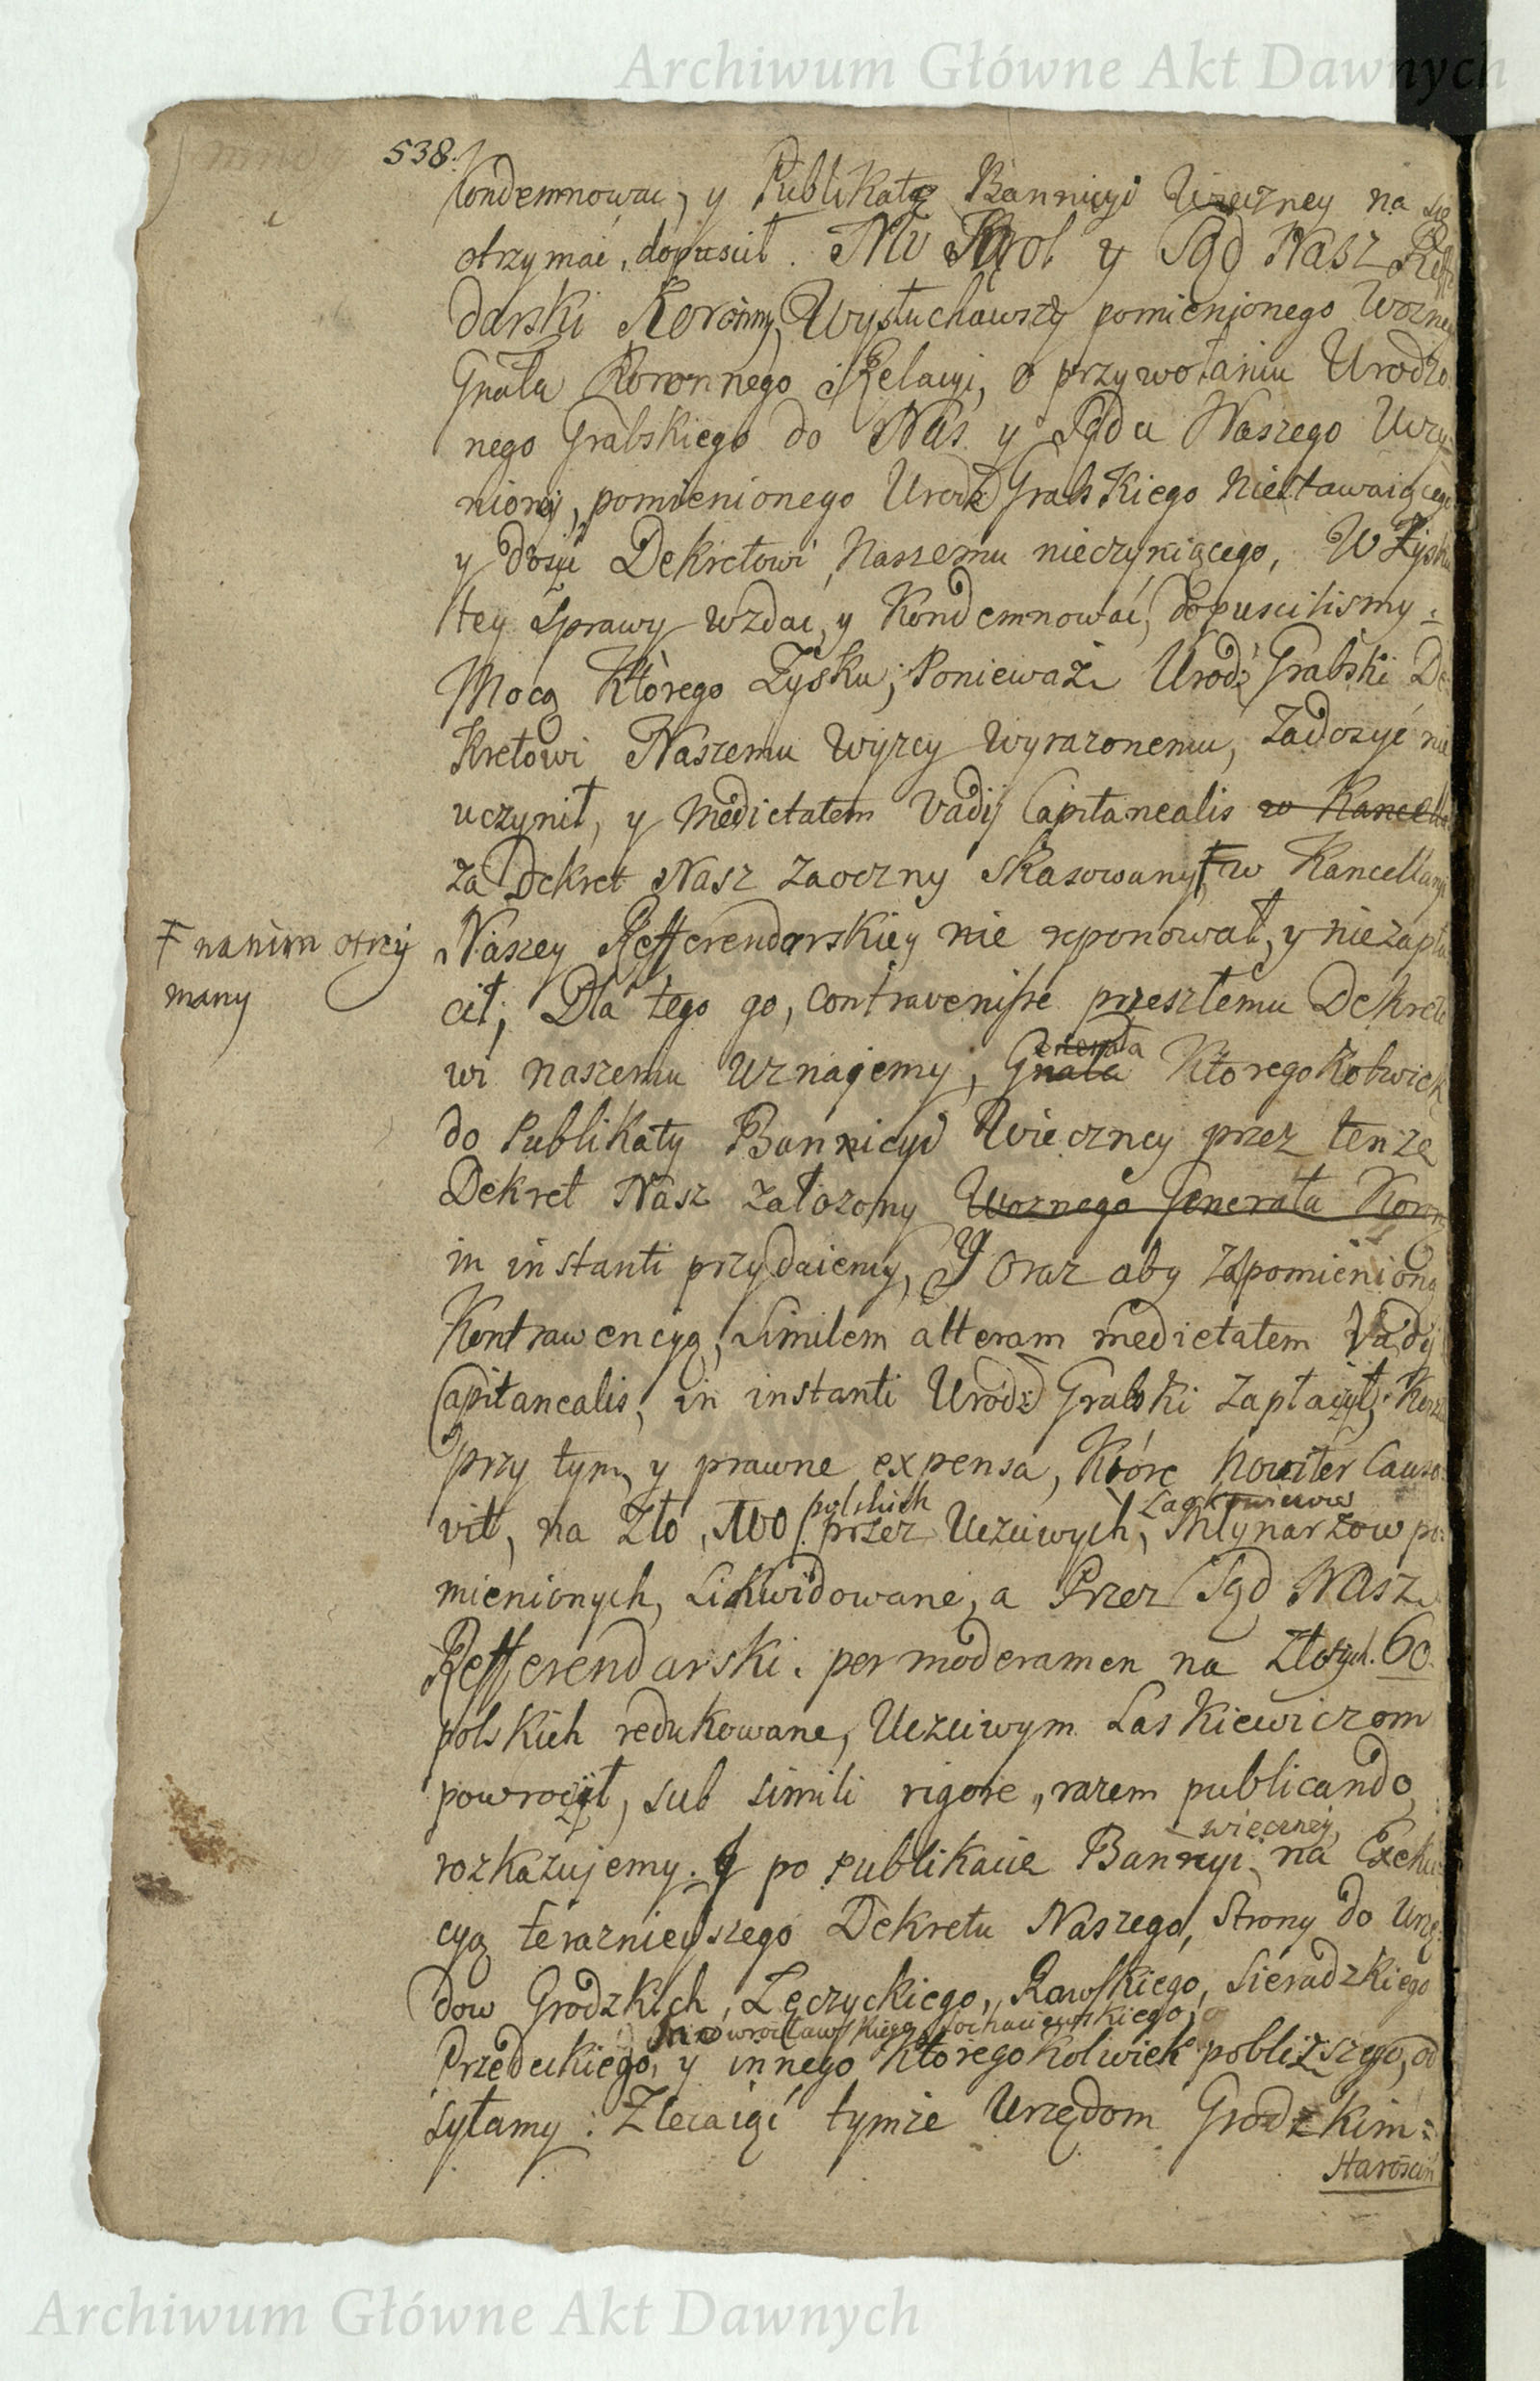 Archiwum Główne Akt Dawnych
538.
Kondemnowac, y Publikatę Bannicyi Wieczney na się
otrzymać, dopuscił. My Krol y Sąd Nasz Reff
darski Koronny, Wysłuchawszy pomienionego Wozneg
Gnała Koronnego Relacyi, o przywołaniu Urodzo
nego Grabskiego do Nas y Sądu Naszego Uczy-
nioney, pomienionego Urodz: Grabskiego niestawaiącego
y dosyć Dekretowi Naszemu nieczyniącego, W Zysku
tey Sprawy wzdac, y Kondemnować, dopuscilismy:
Mocą Ktòrego Zysku; Ponieważ Urodz: Grabski De-
kretowi Naszemu Wyzey wyrazonemu, Zadosyć nie
uczynił, y medietatem Vadij Capitanealis w Kancella
za Dekret Nasz zaoczny skasowany, Ŧ w Kancellaryi
Ŧ na nim otrzy
many
Naszey Refferendarskiey nie reponował, y niezapła
cił; Dla tego go, contravenisse przeszłemu Dekreto
wi naszemu uznajemy, Gnała Generała Ktoregokolwiek
do Publikaty Bannicyi Wieczney przez tenze
Dekret Nasz załozony Woznego Generała Koron
in instanti przydaiemy, Y Oraz aby za pomienioną
Kontrawencyą, similem alteram medietatem Vadij
Capitanealis, in instanti Urodz: Grabski zapłacił,
przy tym y prawne expensa, Które noviter causa-
vit, na Zło, 100 polskich przez Uczciwych, Laskiewiczow Młynarzow po-
mienionych, Likwidowane, a Przez Sąd Nasz
Refferendarski. per moderamen na Złotych. 60.
polskich redukowane, Uczciwym Laskiewiczom
powrocił, sub simili rigore, razem publicando,
rozkazujemy. Y po Publikacie Bannicyi wieczney, na Exeku-
cyą terazniejszego Dekretu Naszego, Strony do Urzę-
dow Grodzkich, Łęczyckiego, Rawskiego, Sieradzkiego
Przedeckiego, Inowrocławskiego, Sochaczewskiego, y innego ktoregokolwiek pobliższego, od
syłamy: Zlecaiąc tymze Urzędom Grodzkim:
Starościń
Archiwum Główne Akt Dawnych